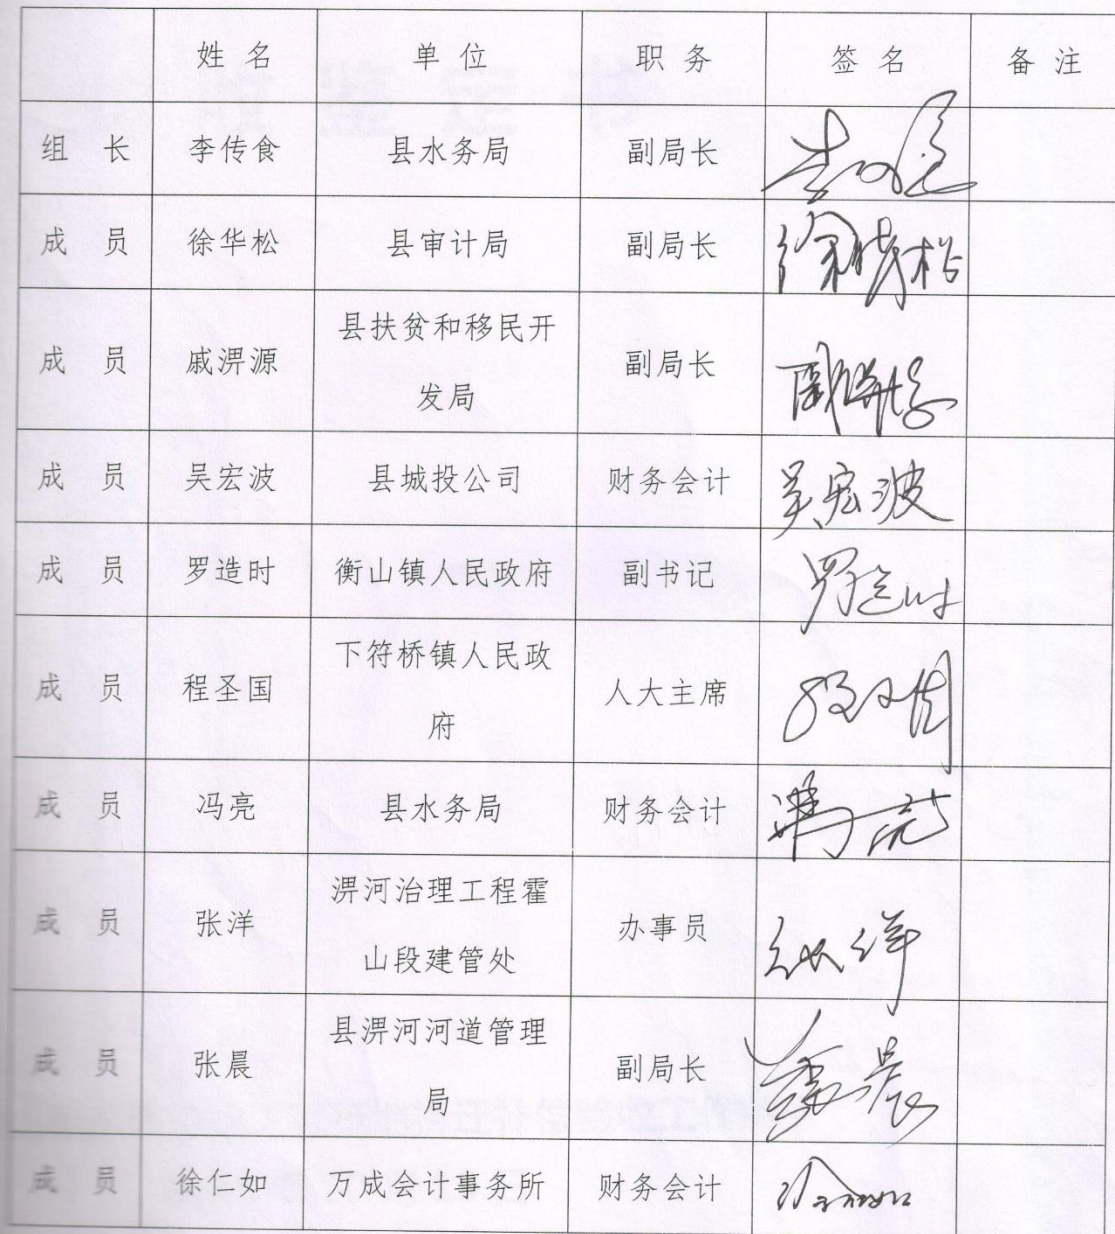 姓名 单位 职务 签名 备注
组长 李传食 县水务局 副局长
成员 徐华松 县审计局 副局长 徐华松
成员 戚淠源 县扶贫和移民开 副局长
发局
成员 吴宏波 县城投公司 财务会计 吴宏波
成员 罗造时 衡山镇人民政府 副书记 罗造时
成员 程圣国 下符桥镇人民政 人大主席
府
成员 冯亮 县水务局 财务会计 冯亮
成员 张洋 淠河治理工程霍 办事员 张洋
山段建管处
成员 张晨 县淠河河道管理 副局长
局
成员 徐仁如 万成会计事务所 财务会计